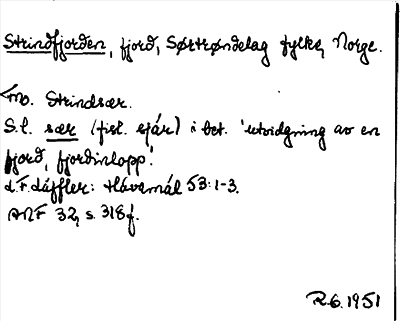 Strindfjorden, fjord, Sørtrøndelag fylke, Norge.
<no. Strindsær.
S.l. sær (fisl. sjár) i bet. 'utvidgning av en
fjord, fjordinlopp'.
L.F. Läffler: Hávamál 53:1-3.
ANF 32, s. 318 f.
R.6.1951